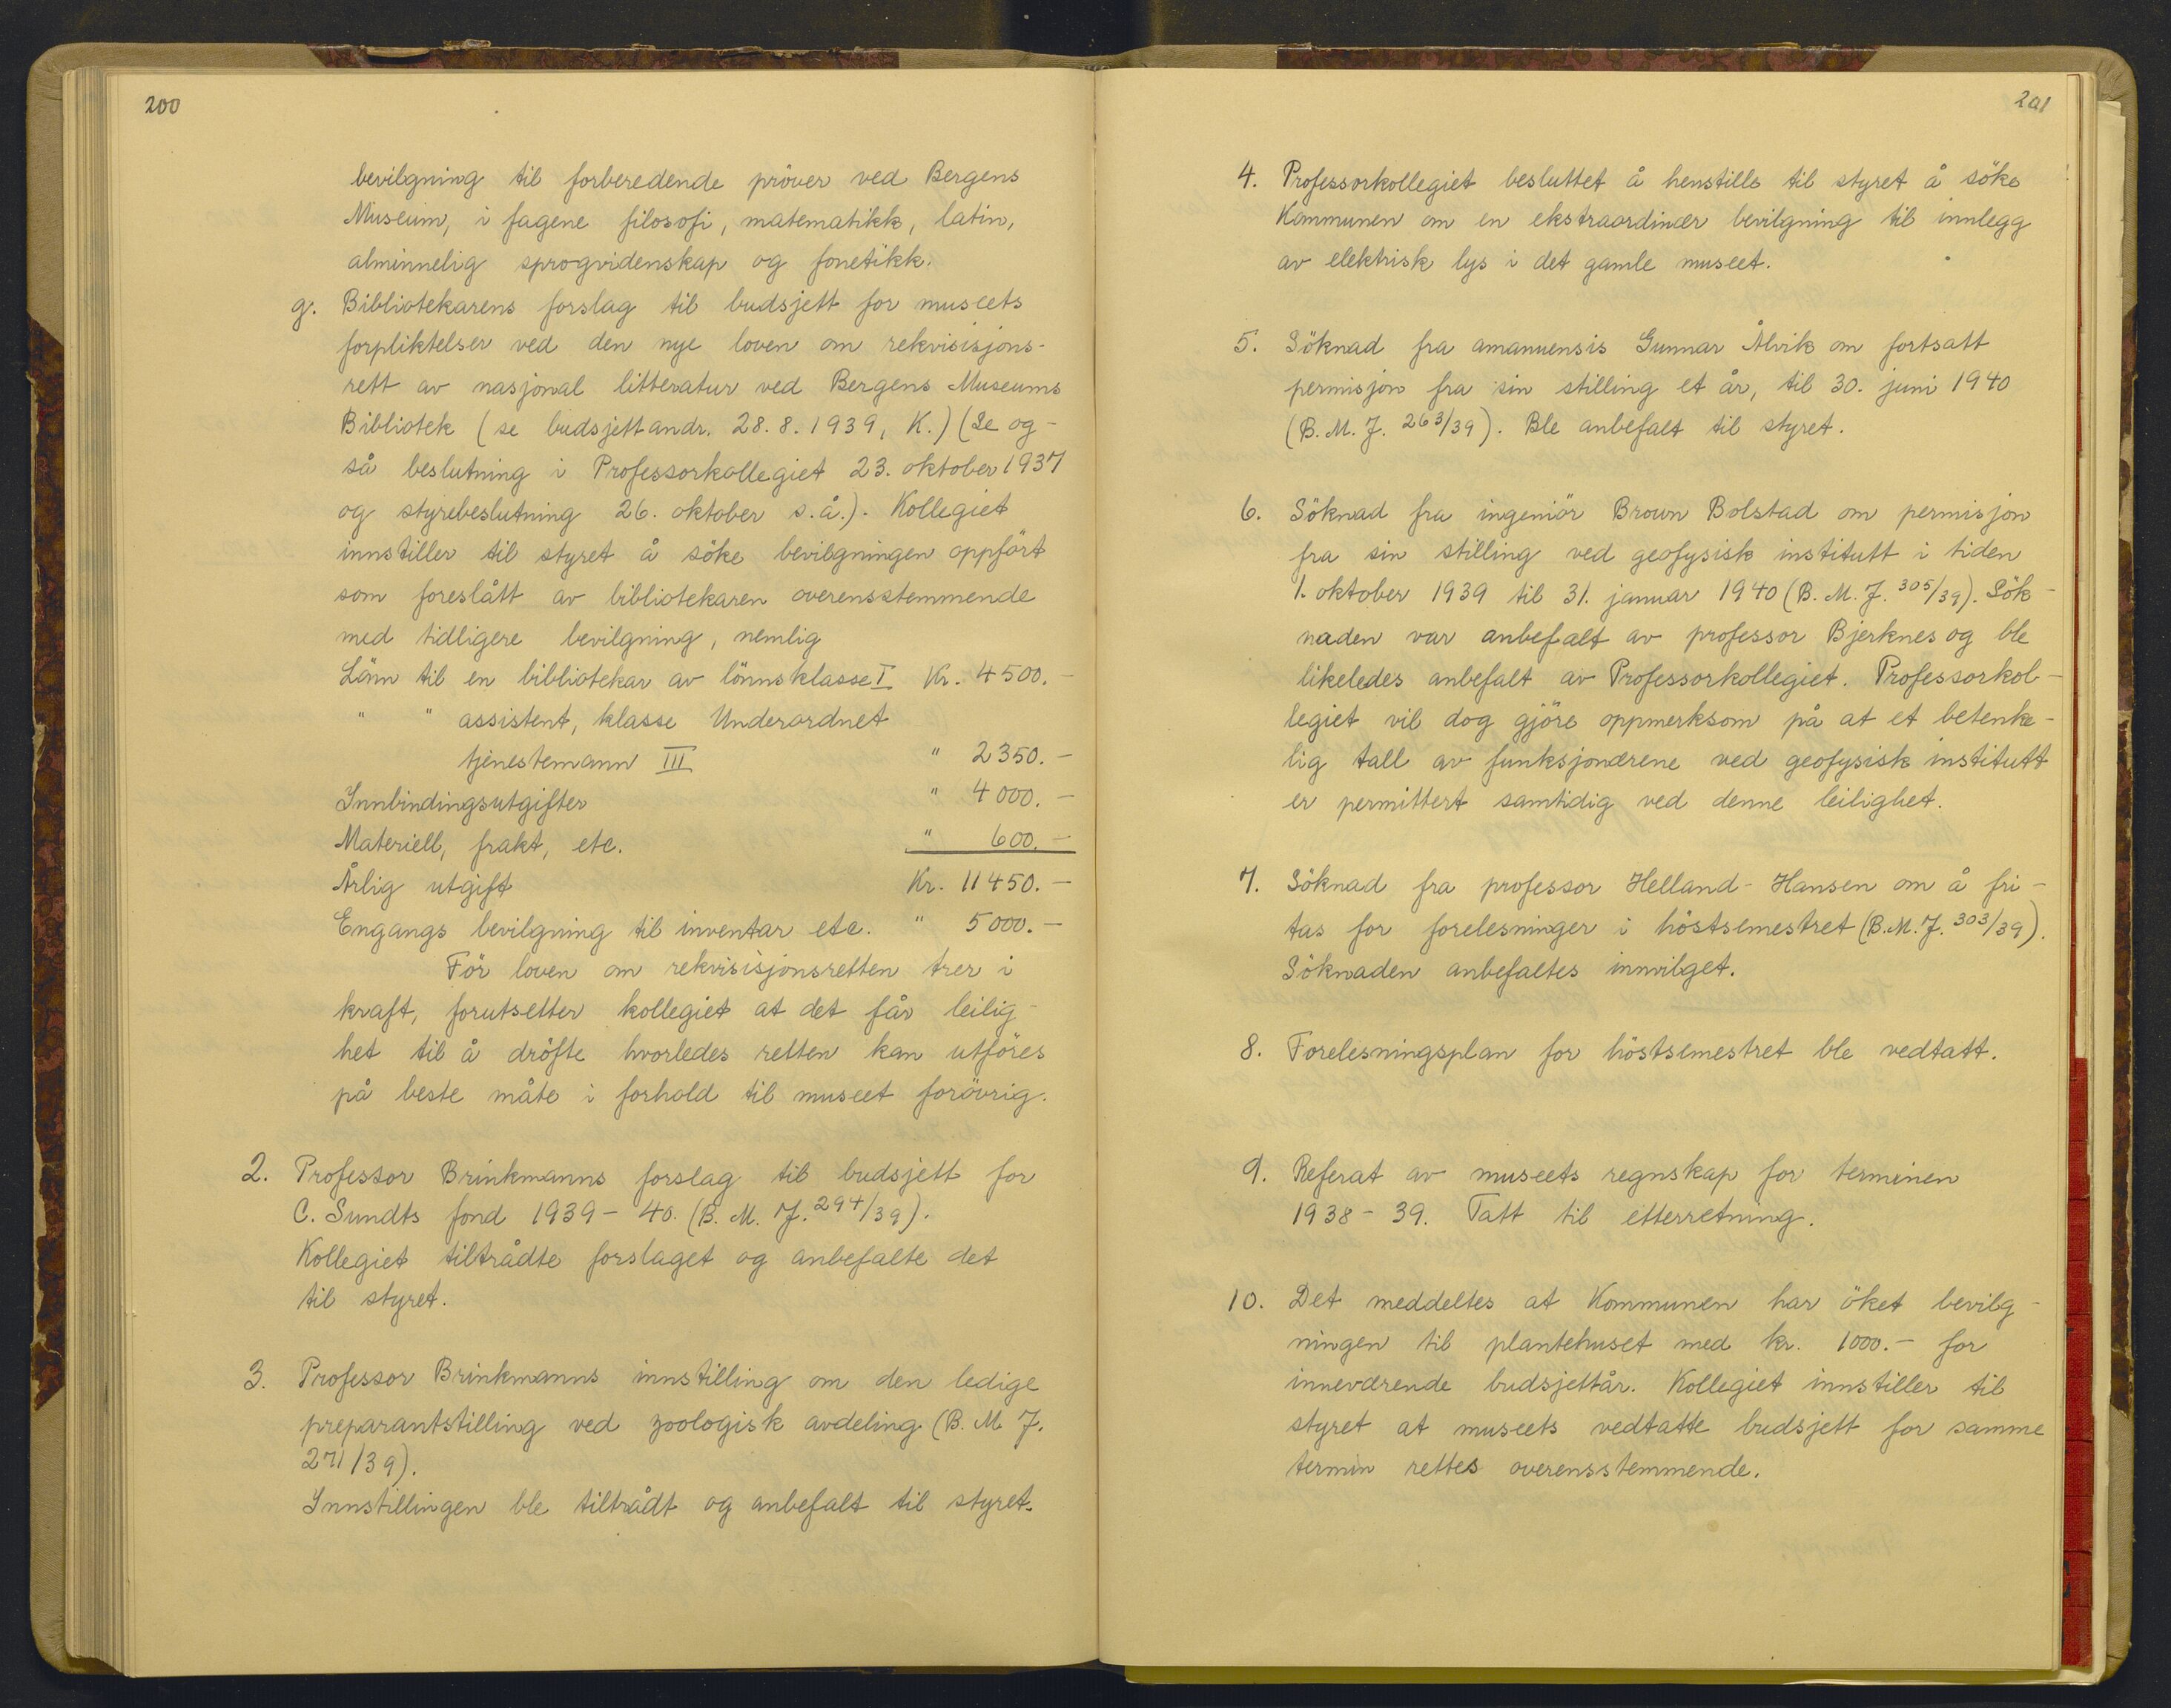 200
bevilgning til forberedende pröver ved Bergens
Museum, i fagene filosofi, matematikk, latin,
alminnelig sprogvidenskap og fonetikk.
g. Bibliotekarens forslag til budsjett for museets
forpliktelser ved den nye loven om rekvisisjons-
rett av nasjonal litteratur ved Bergens Museums
Bibliotek (se budsjettandr. 28.8.1939, K.) (Se og-
så beslutning i Professorkollegiet 23. oktober 1937
og styrebeslutning 26. oktober s.å.). Kollegiet
innstiller til styret å söke bevilgningen oppfört
som foreslått av bibliotekaren overensstemmende
med tidligere bevilgning, nemlig
Lönn til en bibliotekar av lönnsklasse I Kr. 4500.-
" " assistent, klasse Underordnet
tjenestemann III " 2350.-
Innbindingsutgifter " 4000.-
Materiell, frakt, etc. " 600.-
Årlig utgift Kr. 11450.-
Engangs bevilgning til inventar etc. " 5000.-
För loven om rekvisisjonsretten trer i
kraft, forutsetter kollegiet at det får leilig-
het til å dröfte hvorledes retten kan utföres
på beste måte i forhold til museet forövrig.
2. Professor Brinkmanns forslag til budsjett for
C. Sundts fond 1939-40. (B. M. J. 294/39).
Kollegiet tiltrådte forslaget og anbefalte det
til styret.
3. Professor Brinkmanns innstilling om den ledige
preparantstilling ved zoologisk avdeling (B. M J.
271/39).
Innstillingen ble tiltrådt og anbefalt til styret.
201
4. Professorkollegiet besluttet å henstille til styret å söke
Kommunen om en ekstraordinær bevilgning til innlegg
av elektrisk lys i det gamle museet.
5. Söknad fra amanuensis Gunnar Ålvik om fortsatt
permisjon fra sin stilling et år, til 30. juni 1940
(B. M. J. 263/39). Ble anbefalt til styret.
6. Söknad fra ingeniör Brown Bolstad om permisjon
fra sin stilling ved geofysisk institutt i tiden
1. oktober 1939 til 31. januar 1940 (B. M. J. 305/39). Sök-
naden var anbefalt av professor Bjerknes og ble
likeledes anbefalt av Professorkollegiet. Professorkol-
legiet vil dog gjöre oppmerksom på at et betenke-
lig tall av funksjonærene ved geofysisk institutt
er permittert samtidig ved denne leilighet.
7. Söknad fra professor Helland-Hansen om å fri-
tas for forelesninger i höstsemestret (B.M.J. 303/39).
Söknaden anbefaltes innvilget.
8. Forelesningsplan for höstsemestret ble vedtatt.
9. Referat av museets regnskap for terminen
1938-39. Tatt til etterretning.
10. Det meddeltes at Kommunen har öket bevilg-
ningen til plantehuset med kr. 1000.- for
inneværende budsjettår. Kollegiet innstiller til
styret at museets vedtatte budsjett for samme
termin rettes overensstemmende.